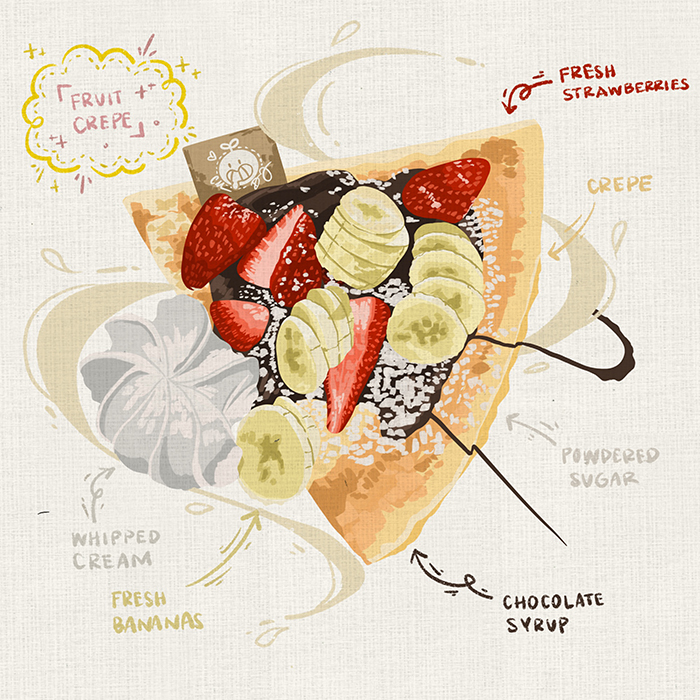 「FRUIT
CREPE」
FRESH
STRAWBERRIES
CREPE
POWDERED
SUGAR
WHIPPED
CREAM
FRESH
BANANAS
CHOCOLATE
SYRUP